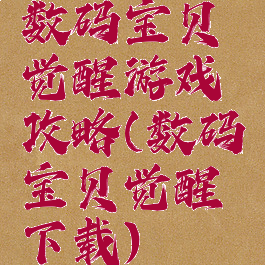 数码宝贝
觉醒游戏
攻略(数码
宝贝觉醒
下载)